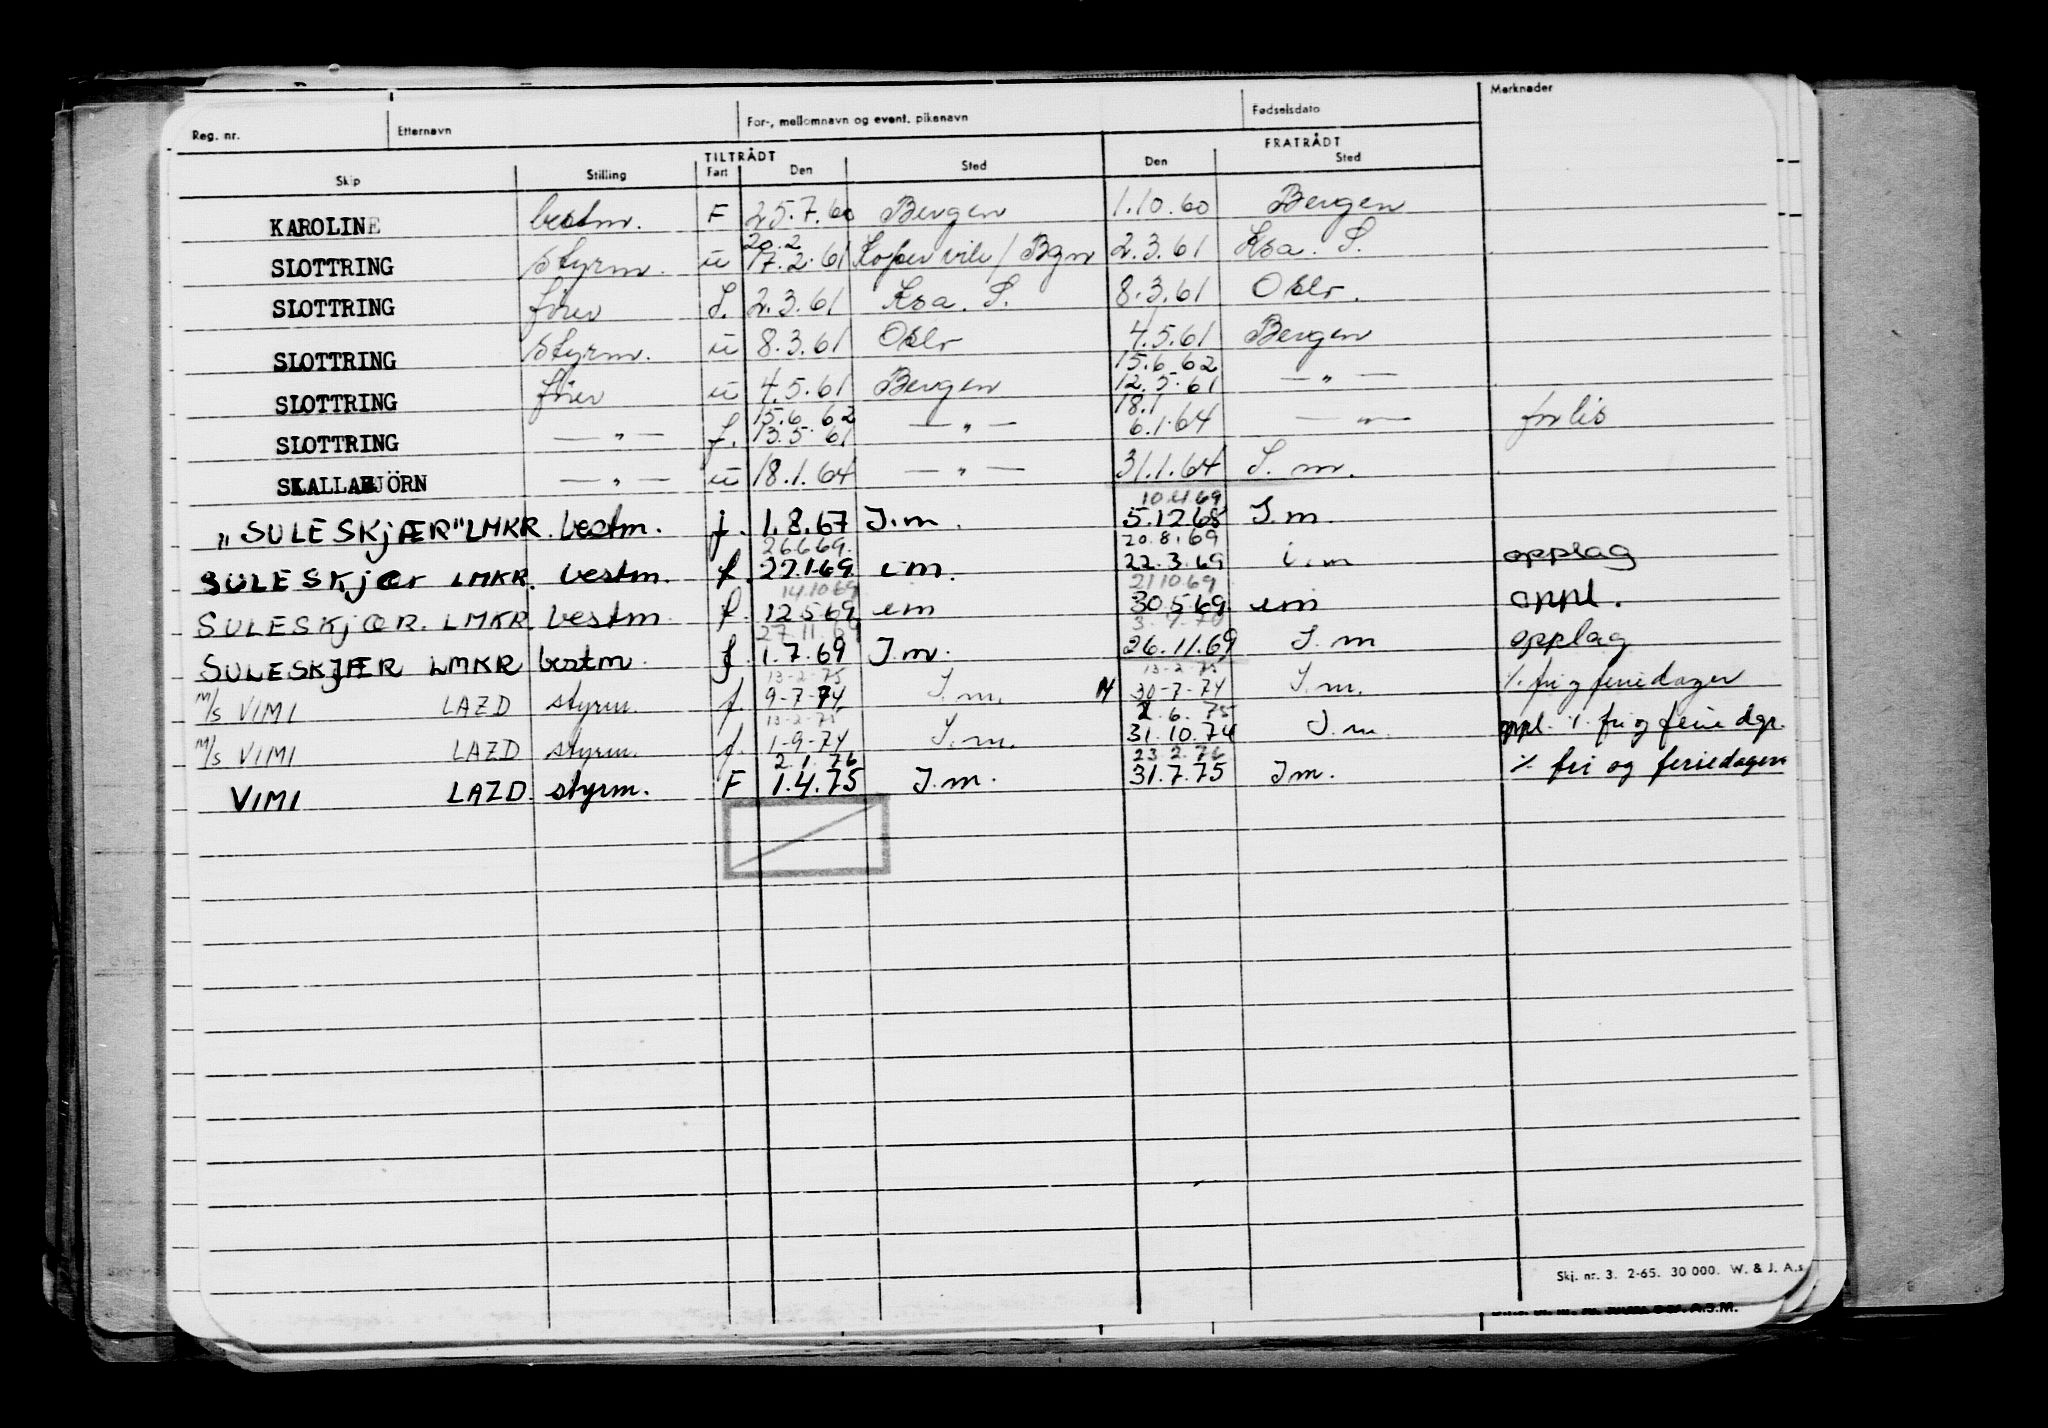 Reg. nr. Etternavn For-, mellomnavn og event. pikenavn Fødselsdato Merknader
TILTRÅDT FRATRÅDT
Skip Stilling Fart Den Sted Den Sted
KAROLINE bestm. F 25.7.60 Bergen 1.10.60 Bergen
20.2
SLOTTRING styrm. u 17.2.61 Kopervik / Bgn 2.3.61 Ksa. S.
SLOTTRING fører S. 2.3.61 Ksa. S. 8.3.61 Oslo.
SLOTTRING styrm. u 8.3.61 Oslo 4.5.61 Bergen
15.6.62
SLOTTRING fører u 4.5.61 Bergen 12.5.61 — " —
15.6.62 18.1
SLOTTRING — " — f. 13.5.61 — " — 6.1.64 — " — forlis
SKALLABJÖRN — " — u 18.1.64 — " — 31.1.64 S. m.
10.4.69
"SULESKJÆR" LMKR. bestm. f. 1.8.67 I.m. 5.12.68 I.m.
26.6.69. 20.8.69
SULESKJær LMKR. bestm. f. 22.1.69 i.m. 22.3.69 i.m opplag
14.10.69 21.10.69
SULESKJÆR. LMKR. bestm. f. 12.5.69 im 30.5.69 im oppl.
27.11.69 3.7.70
SULESKJÆR LMKR bestm. f. 1.7.69 I.m. 26.11.69 I.m opplag
13-2-75 13-2-75
M/S VIMI LAZD styrm. f. 9-7-74 I.m. 30-7-74 I.m. % fri og feriedager
13-2-75 2.6.75
M/S VIMI LAZD styrm. f. 1-9-74 I.m. 31.10.74 I.m. oppl. % fri og ferie dgr.
2.1.76 23.2.76
VIMI LAZD. styrm. F 1.4.75 I.m. 31.7.75 I.m. % fri og feriedagen
Skj. nr. 3. 2-65. 30 000. W. & J. A.s